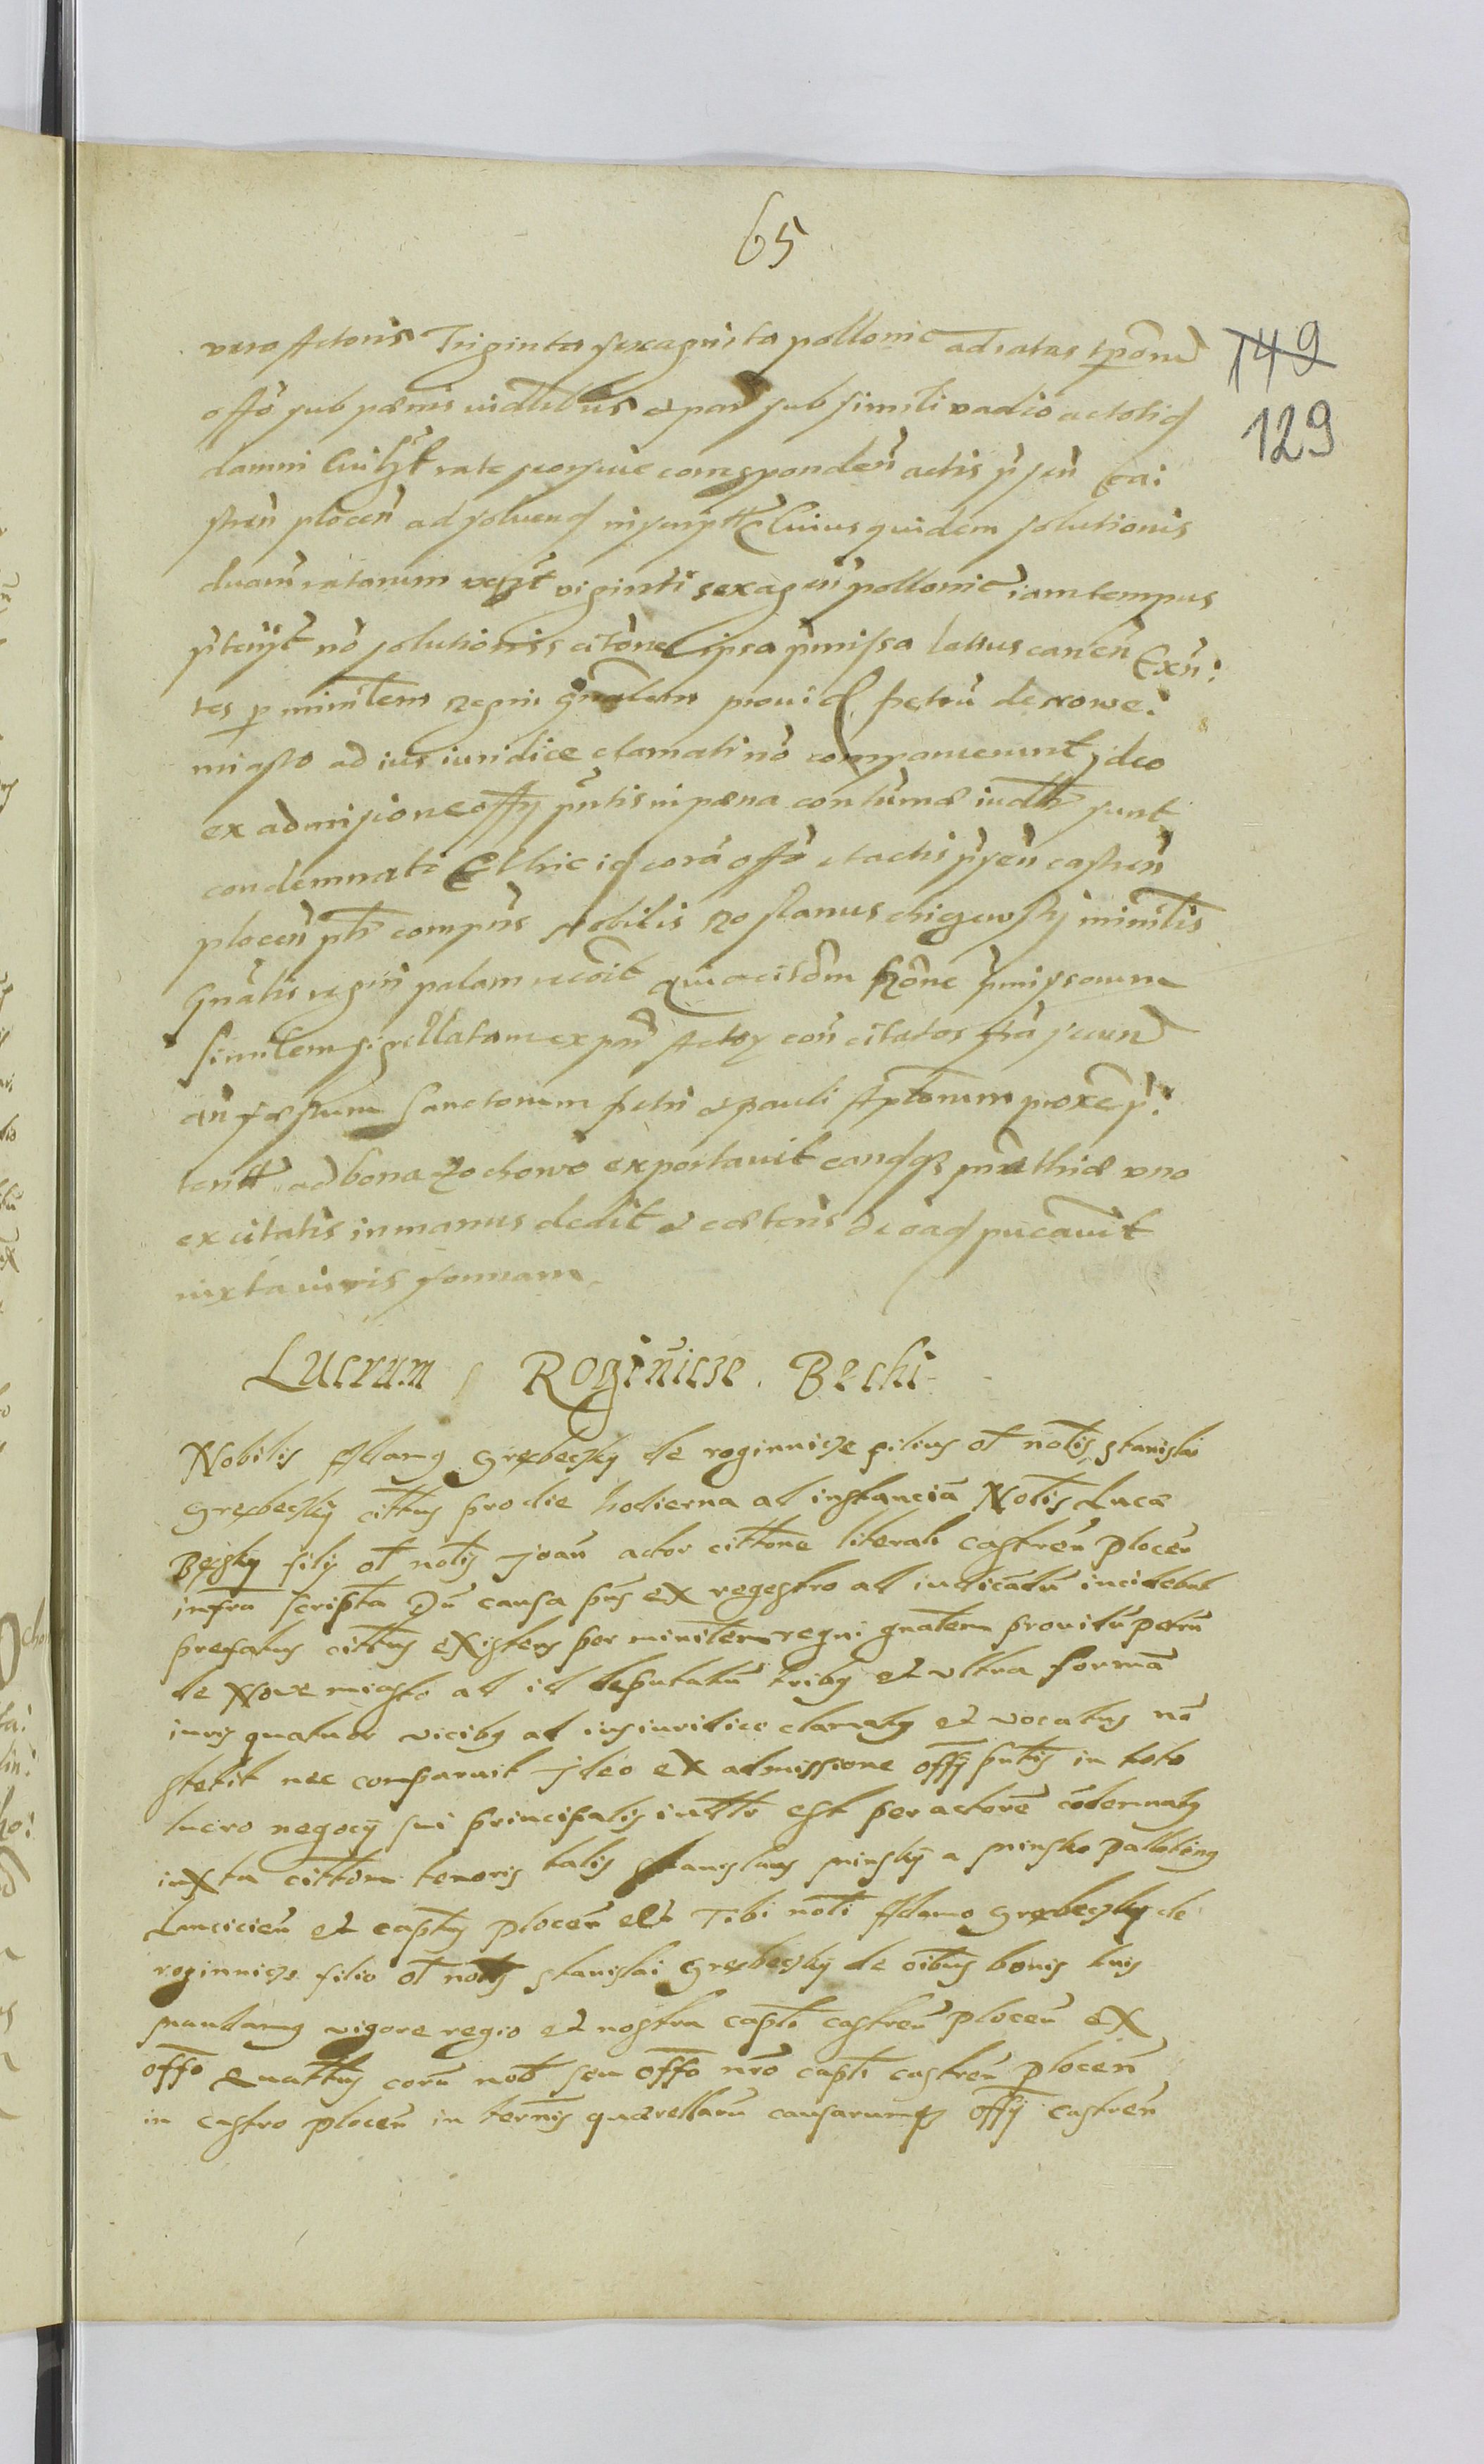 65
149
129
vero Actoris Triginta sexaginta pollonic ad ratas
offo sub pœnis vidlibus & pari sub simili vadio ac toliq
damni cuilzt rate seorsive corresponden actis psen Ca:
stren plocen ad solvend inscriptt Cuius quidem solutionis
duarum ratarum viginti sexagen pollonic iam tempus
no solutionis citone ipsa pmissa latius canen Exn:
tes p ministem Regni gnalem provid Petru de nowe:
miasto ad ius iuridice clamati no comparuerunt jdeo
ex admissione offy pntis in pœna contumac iudlr sunt
condemnati Et hic id cora offo et actis psen castren
plocen plr compns Nobilis Rostanus chizewsky ministis
Gnalis regni palam recoit quia citom pmissorum
similem sigillatam ex par Actor con citatos
an festum Sanctorum Petri & pauli Aplorum proxe p:
teritt ad bona Zochowo exportavit eandqz uno
ex citatis in manus dedit & cœteris de eaq pucavit
iuxta iuris formam
Lucrum Roginicze. Bechi
Nobilis Adamg Grebeczky de roginnicze filius ol nolis stanislai
Grebeczky cittus pro die hodierna ad instancia Nolis Luca
Beczky fily ol nolis Joan actor cittone literali castren plocen
infra scripta Du causa pns ex regestro ad iudicadu incidebat
prefatus cittus existens per ministem regni gnalem providu petru
de Nove miasto ad id deputatu tribg et ultra forma
iuris quatuor vicibg ad ius iuridice clamatg et vocatus no
stetit nec comparuit jdeo ex admissione offy pntis in toto
lucro negocy sui principalis iudlr est per actore codemnatg
iuxta cittom tenoris talis Stanislaus minsky a minsko pallating
Lancicien et captus plocen etc Tibi noli Adamo Grebeczky de
roginnicze filio ol nolis stanislai Grebeczky de oibus bonis tuis
mandamg vigore regio et nostra capli castren plocen ex
offo quattus coru nob seu offo nro capli castren plocen
in castro plocen in ternis quærellaru causarumqz offy castren